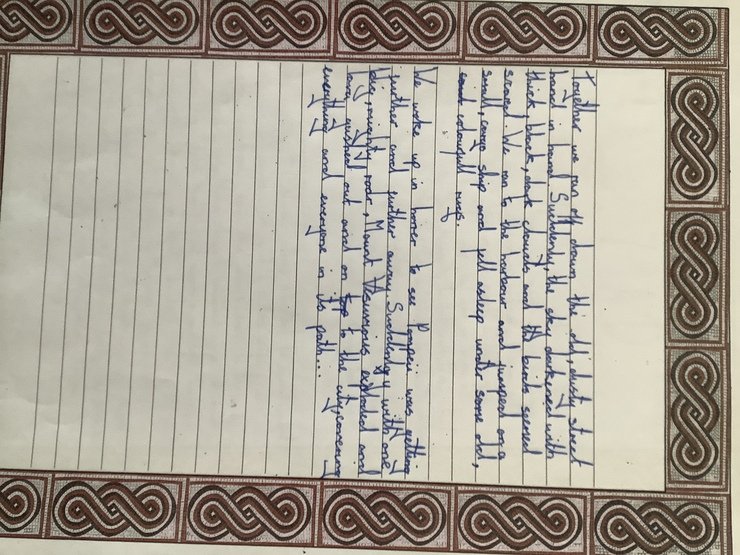 Together we ran off down the old, dusty street
hand in hand. Suddenly, the sky darkened with
thick, black, dark clouds and the birds seemed
scared. We ran to the harbour and jumped on a
small, cargo ship and fell asleep under some old,
and colourfull rugs.
We woke up in horror to see Pompeii was getting
further and further away. Suddenly, with one
big, mighty roar, Mount Vesuvius exploded and
lava gushed out and on top to the city, covering
everything and everyone in its path...